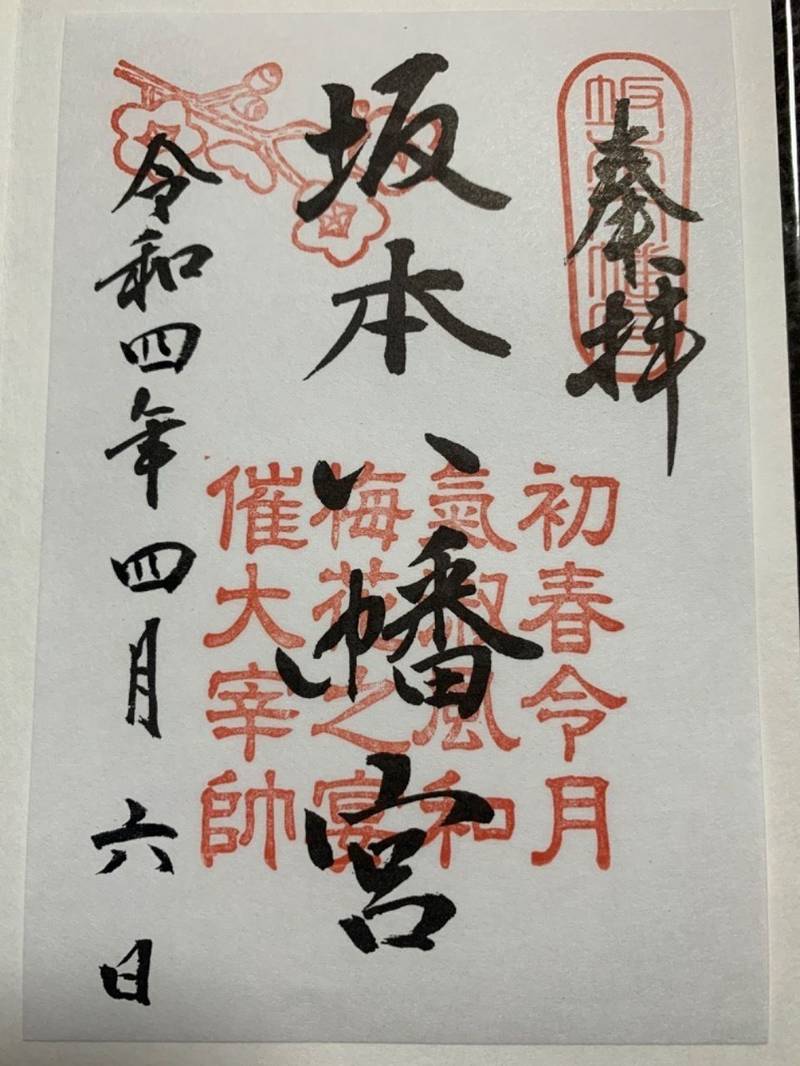 奉拝
坂本八幡宮
初春令月
氣淑風和
梅花之宴
催大宰帥
坂本八幡宮
令和四年四月六日